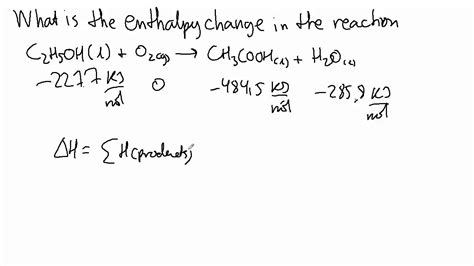 What is the enthalpy change in the reaction
C₂H₅OH(l) + O₂(g) → CH₃COOH(l) + H₂O(l)
-227.7 kJ/mol 0 -484,5 kJ/mol -285,8 kJ/mol
ΔH = ΣH(products)